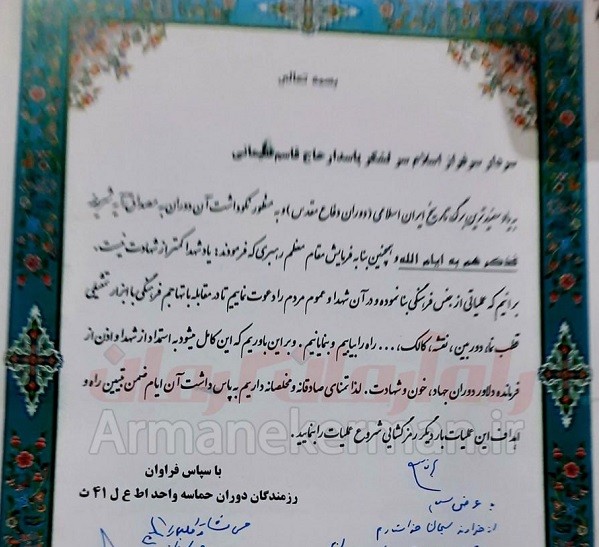 بسمه تعالی
سردار سرفراز اسلام سر لشکر پاسدار حاج قاسم سلیمانی
بر یاد سفیدترین برگ تاریخ ایران اسلامی (دوران دفاع مقدس) و به منظور نکوداشت آن دوران به مصداق آیه شریفه
فذکر هم به ایام الله و همچنین بنا به فرمایش مقام معظم رهبری که فرمودند: یاد شهدا کمتر از شهادت نیست.
برانیم که عملیاتی از جنس فرهنگی بنا نموده و در آن شهدا و عموم مردم را دعوت نماییم تا در مقابله با تهاجم فرهنگی با ابزار تفنگی
قطب نما، دوربین، نقشه، کالک، ... راه را بیابیم و بنمایانیم. و بر این باوریم که این کامل میشود به استمداد از شهدا و اذن از
فرمانده دلاور دوران جهاد، خون و شهادت. لذا تمنای صادقانه و مخلصانه داریم به پاس داشت آن ایام ضمن تبیین راه و
اهداف این عملیات بار دیگر رمز گشایی شروع عملیات را بنمایید.
با سپاس فراوان
رزمندگان دوران حماسه واحد اط ع ل ۴۱ ث
Armanekerman.ir